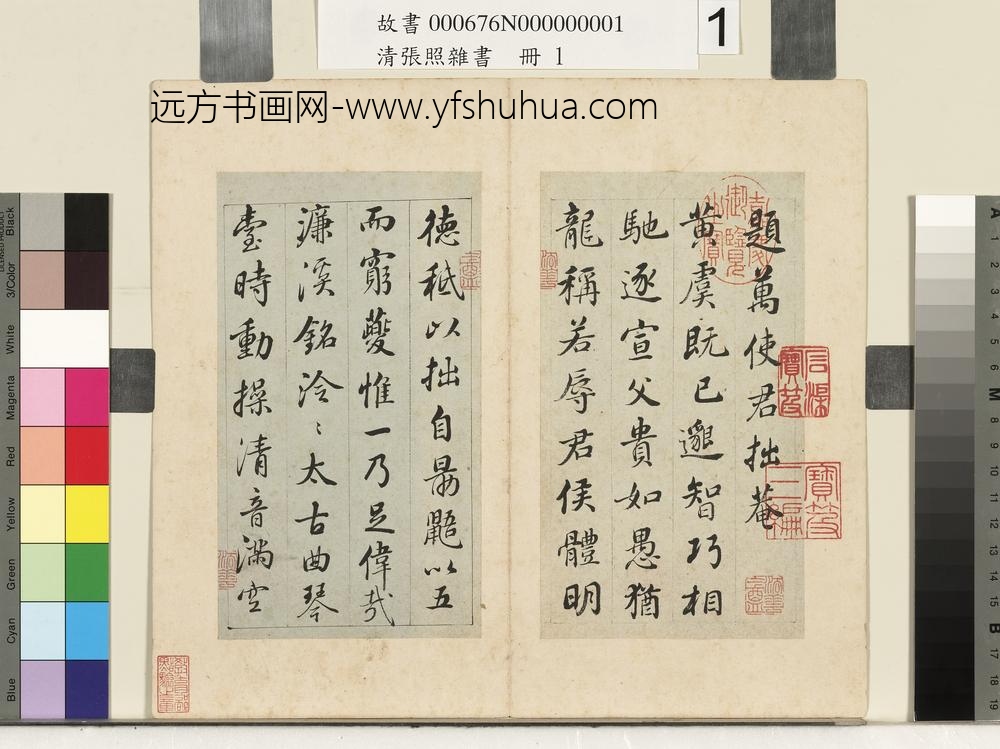 故書 000676N000000001
清張照雜書 冊 1
1
远方书画网-www.yfshuhua.com
題萬使君拙菴
黃虞既已邈智巧相
馳逐宣父貴如愚猶
龍稱若辱君侯體明
德秖以拙自勗鼯以五
而窮夔惟一乃足偉哉
濂溪銘泠〻太古曲琴
臺時動操清音滿空
Black
3/Color
White
Magenta
Red
Yellow
Green
Cyan
Blue
A
1
2
3
4
5
6
M
8
9
10
11
12
13
14
15
B
17
18
19